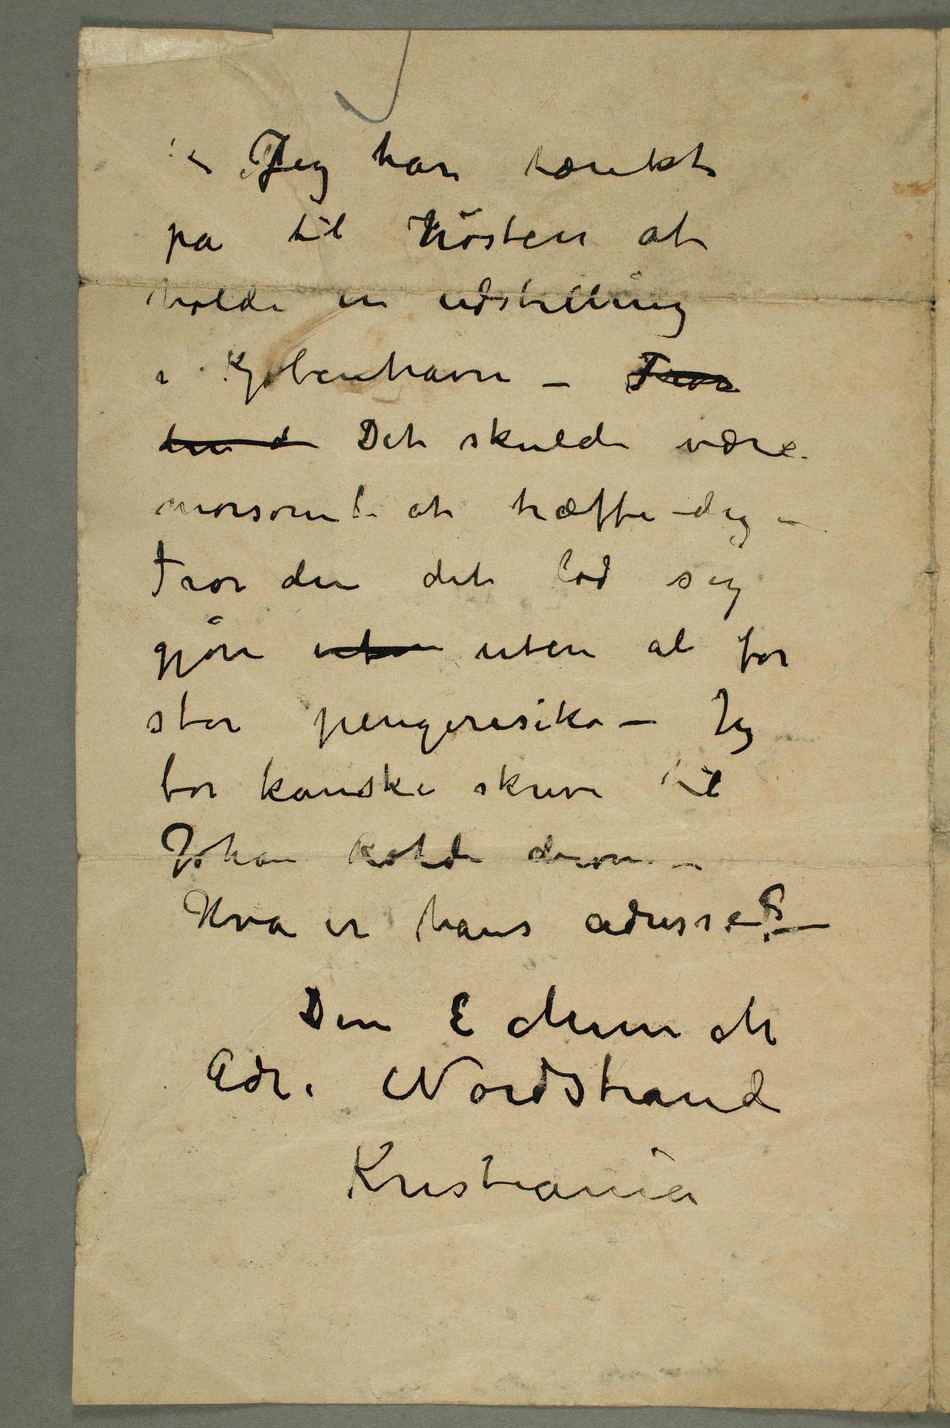 – Jeg har tænkt
på til høsten at
holde en udstilling
i Kjøbenhavn – Tror
du d Det skulde være
morsomt at træffe dig –
Tror du det lod sig
gjøre ut uten al for
stor pengerisiko – Jeg
bør kanske skrive til
Johan Rohde derom –
Hva er hans adresse? –
Din E Munch
Adr. Nordstrand
Kristiania